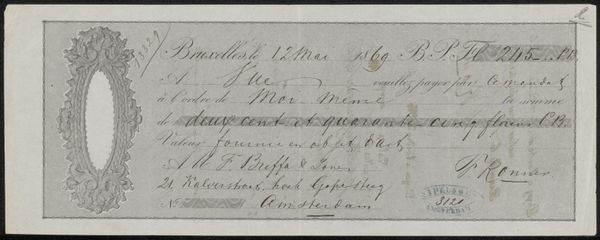 Bruxelles, le 12 Mai 1869 B.P. Fl 245 _ C.B.
A Vue veuillez payer par ce mandat
à l'ordre de Moi-même la somme
de deux cent et quarante cinq florins C.B.
Valeur fournie en objet d'art
A M. F. Buffa & Zonen
21 Kalverstraat, hoek Gapersteeg
No Amsterdam
AMSTERDAM
3121